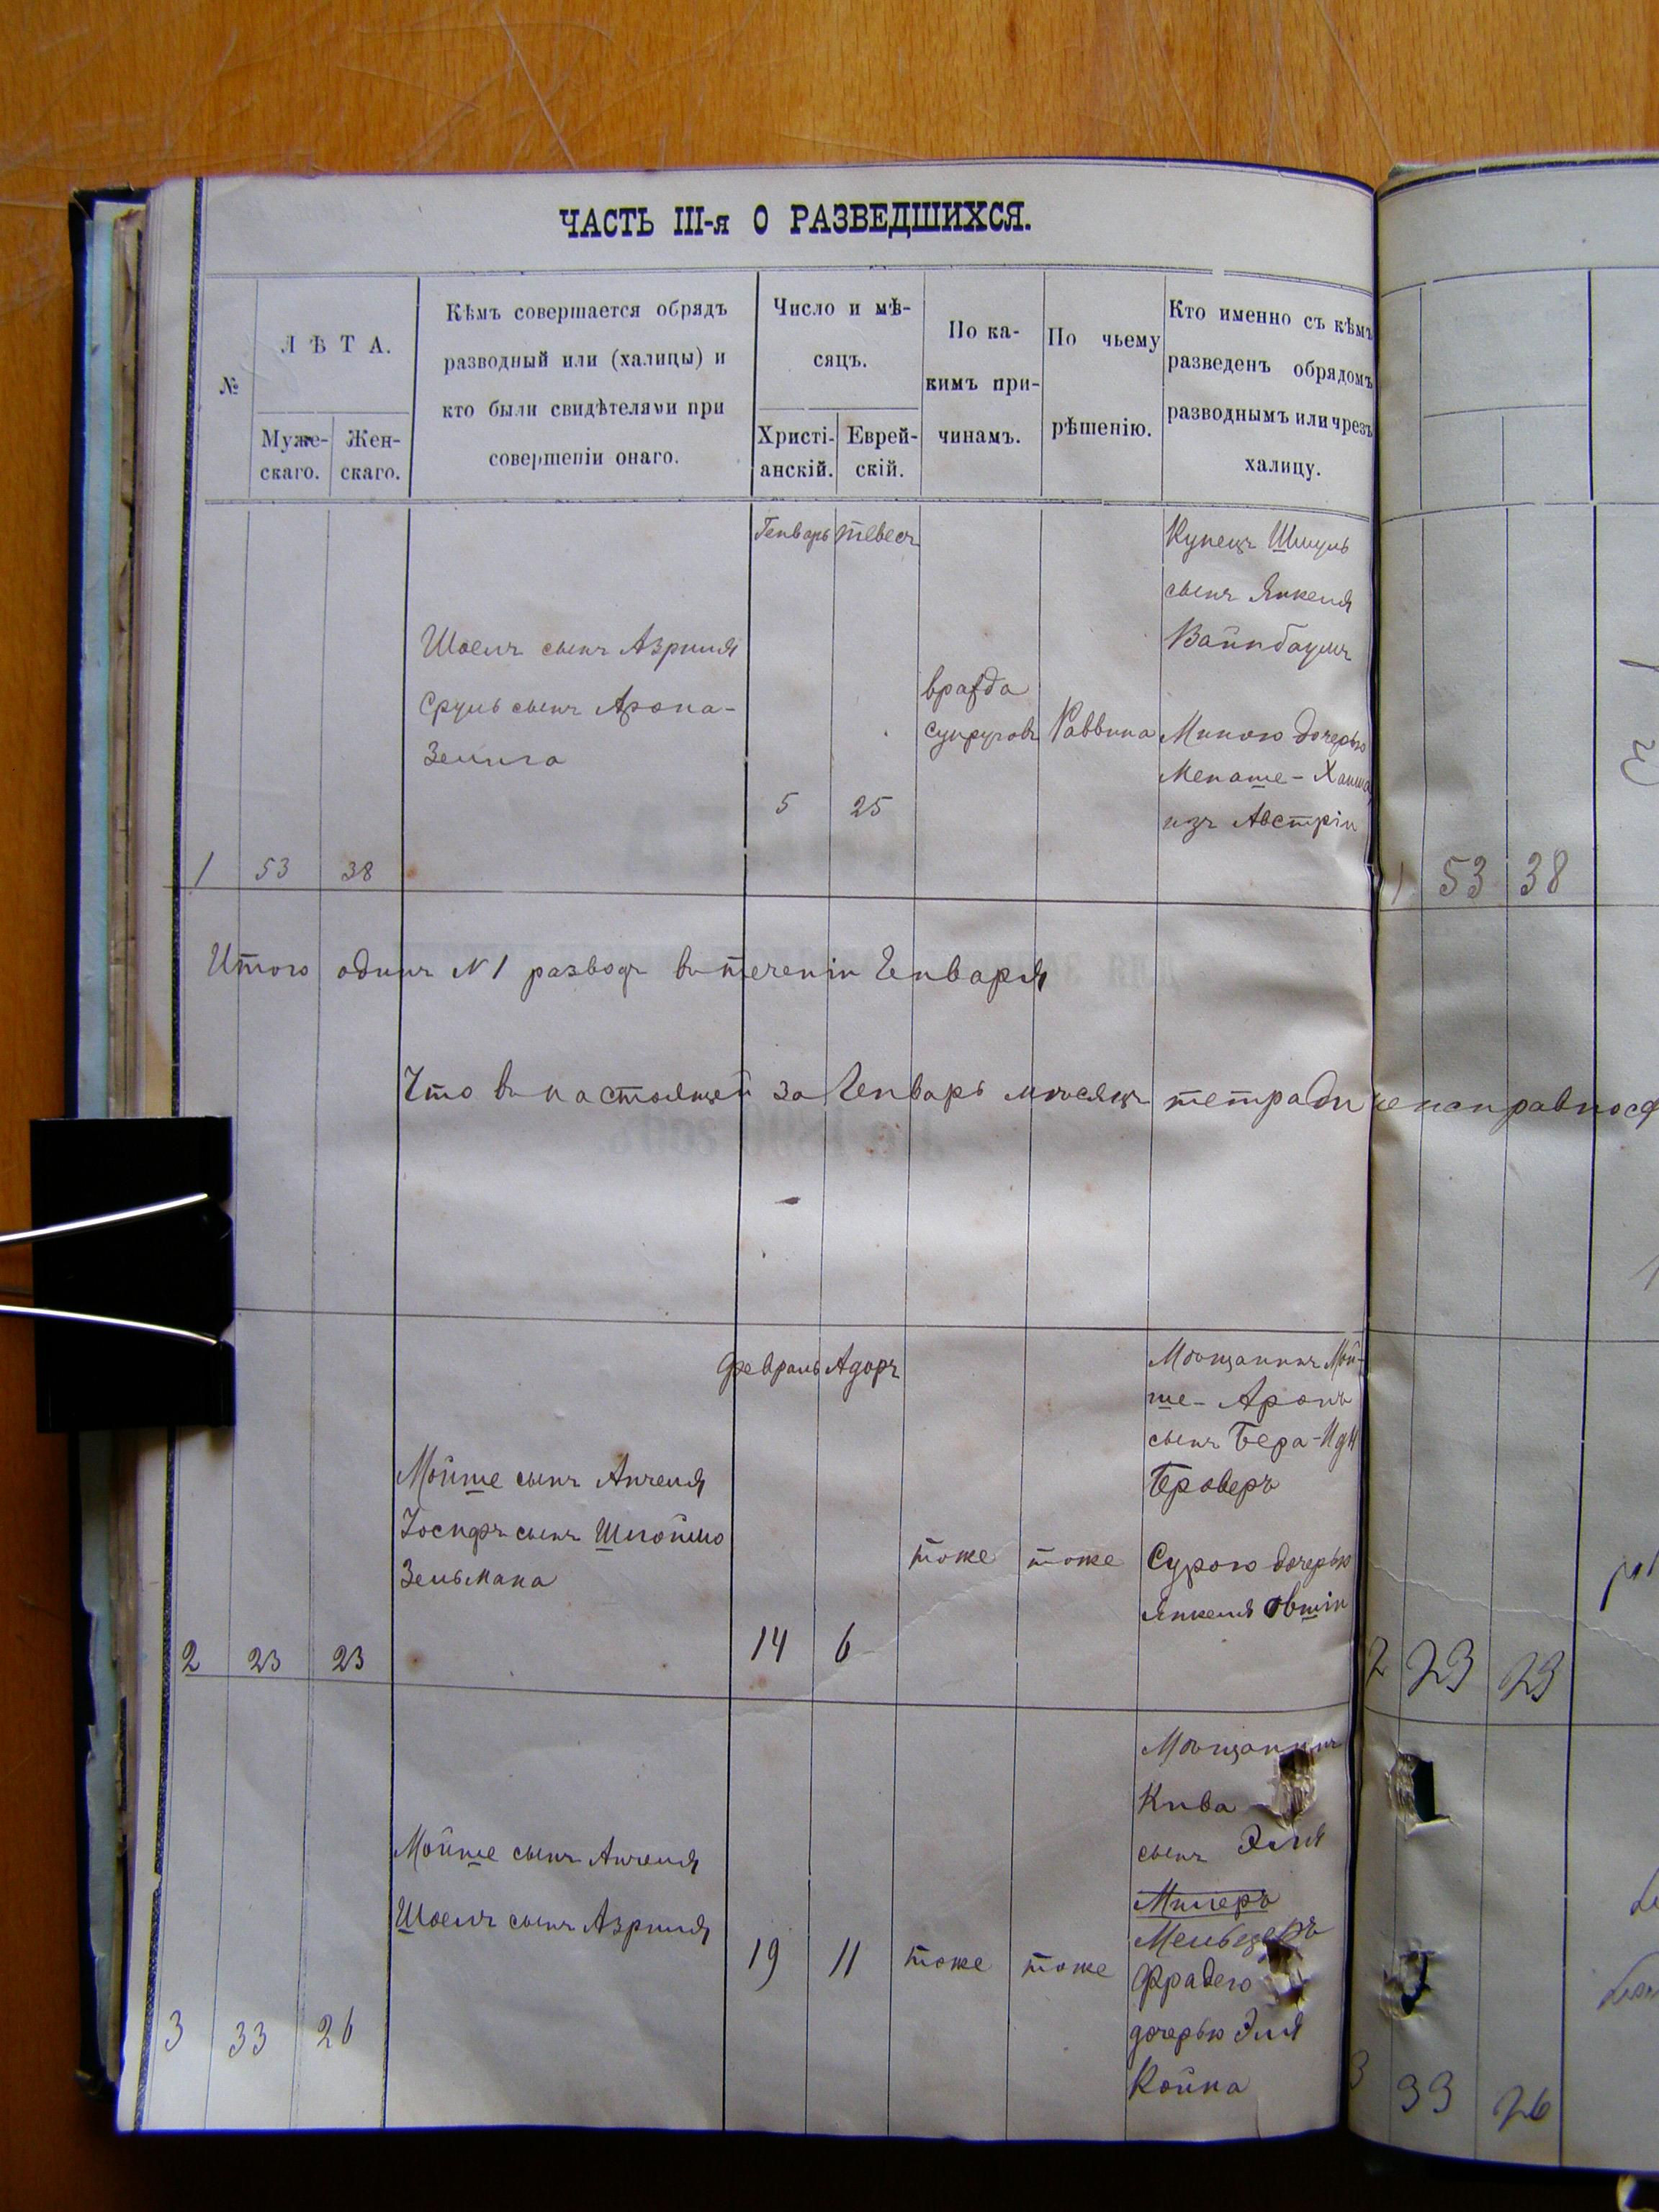 ЧАСТЬ III-я О РАЗВЕДШИХСЯ.
№
ЛѢТА.
Муже-
скаго.
Жен-
скаго.
Кѣмъ совершается обрядъ
разводный или (халицы) и
кто были свидѣтелями при
совершеніи онаго.
Число и мѣ-
сяцъ.
Христі-
анскій.
Еврей-
скій.
По ка-
кимъ при-
чинамъ.
По чьему
рѣшенію.
Кто именно съ кѣмъ
разведенъ обрядомъ
разводнымъ или чрезъ
халицу.
1
53
38
Шоелъ сынъ Азриля
Сруль сынъ Арона-
Зелига
Генварь
5
Тевесъ
25
вражда
супруговъ
Раввина
Купецъ Шмуль
сынъ Янкеля
Вайнбаумъ
Миною дочерью
Менаше-
изъ Австріи
1 53 38
Итого одинъ №1 разводъ въ теченіи Генваря
Что въ настоящей за Генварь мѣсяцъ тетради неисправнос
2
23
23
Мойше сынъ Анчеля
Іосифъ сынъ Шлоймо
Зельмана
Февраль
14
Адоръ
6
тоже
тоже
Мѣщанинъ Мой-
ше-Аронъ
сынъ Бера-
Броверъ
Сурою дочерью
Янкеля
2 23 23
3
33
26
Мойше сынъ Анчеля
Шоелъ сынъ Азриля
19
11
тоже
тоже
Мѣщанинъ
Кива
сынъ Эля
Милеръ
Мельцеръ
Фрадею
дочерью Эля
Койна
3 33 26